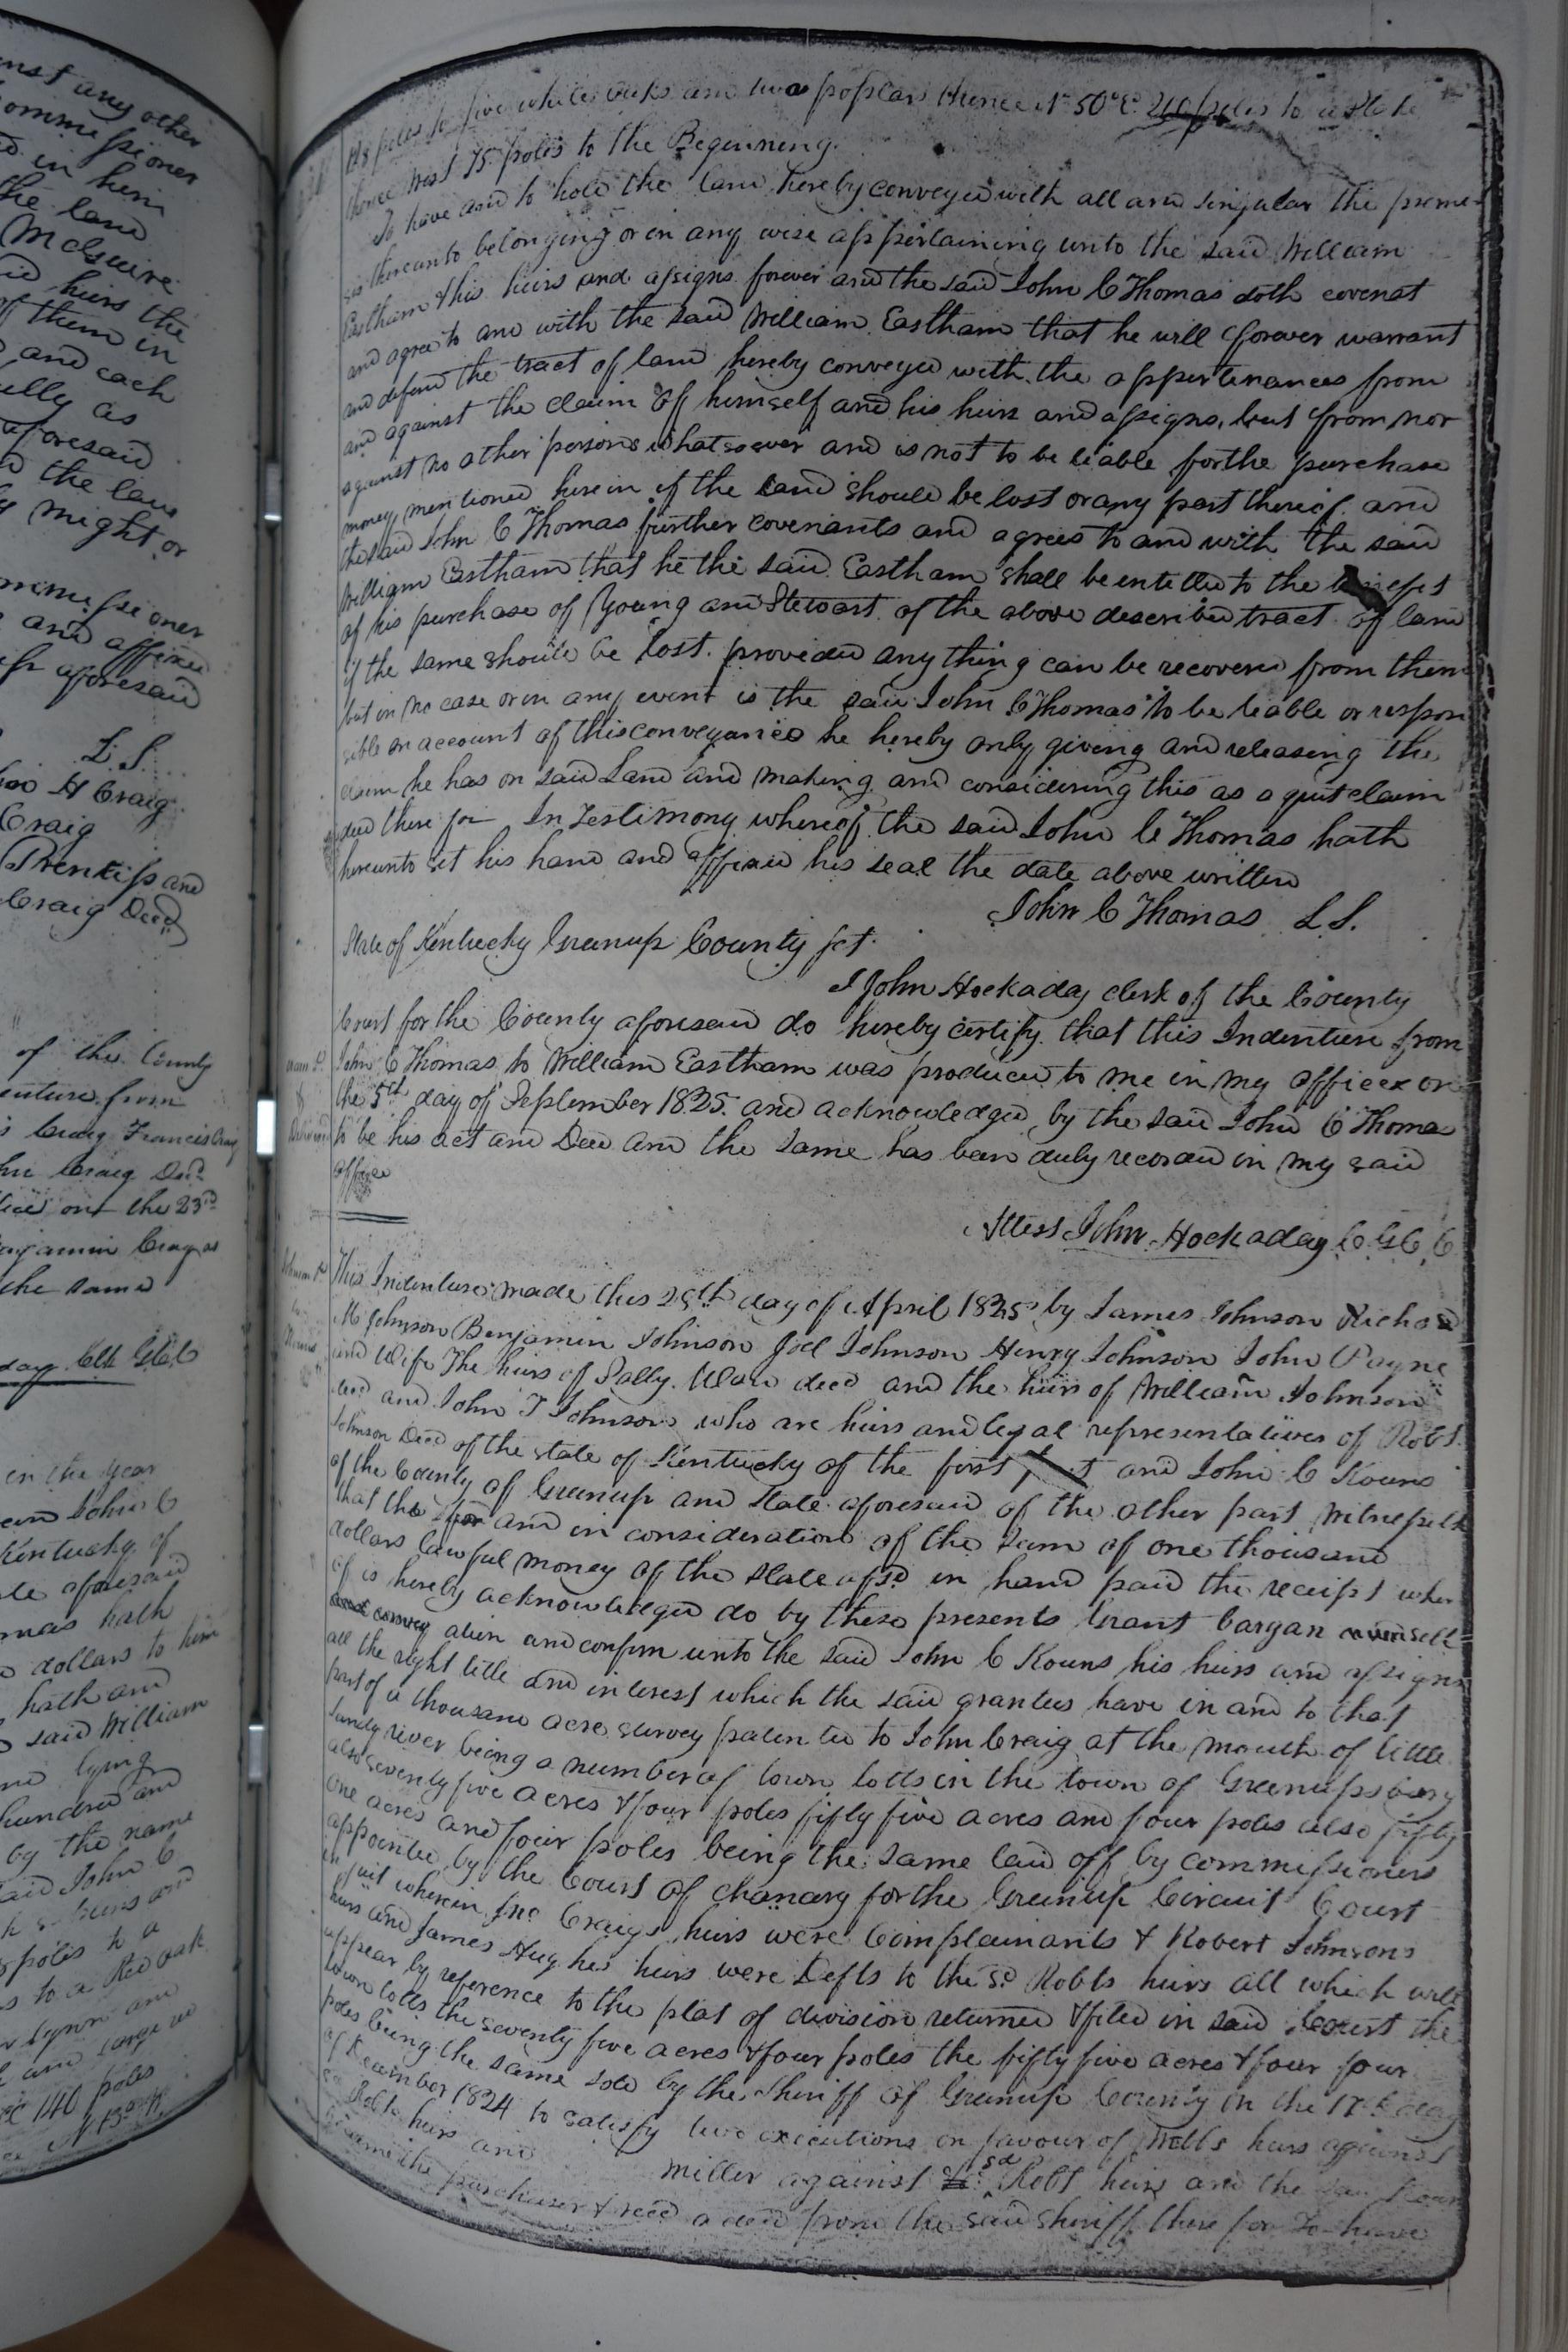 nst any other
ommissioner
d in him
the land
McGuire
id heirs the
of them in
and each
ully as
aforesaid
d the law
might or
mmissioner
and affixed
aforesaid
L. S.
H Craig
Craig
Prentiss and
Craig Deed
of the County
enture from
Craig Francis Craig
hn Craig Decd
fice on the 23rd
enjamin Craig as
the same
day Clk
in the year
John C
Kentucky of
te aforesaid
mas hath
dollars to him
hath and
said William
lying
hundred and
by the name
aid John C
heirs and
poles to a
s to a Red oak
Lynn and
140 poles
poles to five white oaks and two poplars thence N 50° E 210 poles to a stake
thence West 75 poles to the Beginning.
To have and to hold the land hereby conveyed with all and singular the prem-
ses thereunto belonging or in any wise appertaining unto the said William
Eastham & his heirs and assigns forever and the said John C Thomas doth covenat
and agree to and with the said William Eastham that he will forever warrant
and defend the tract of land hereby conveyed with the appertinances from
and against the claim of himself and his heirs and assigns, but from nor
against no other persons whatsoever and is not to be liable for the purchase
money mentioned herein if the Land should be lost or any part thereof. and
the said John C Thomas further covenants and agrees to and with the said
William Eastham that he the said Eastham shall be entitled to the
of his purchase of Young and Stewart of the above described tract of land
if the same should be lost. provided any thing can be recovered from them
but in no case or in any event is the said John C Thomas to be liable or respon
sible on account of this conveyance he hereby only giving and releasing the
claim he has on said Land and making and considering this as a quit claim
deed there for In Testimony whereof the said John C Thomas hath
hereunto set his hand and affixed his seal the date above written
John C Thomas L S.
State of Kentucky Greenup County sct.
I John Hockaday clerk of the County
Court for the County aforesaid do hereby certify that this Indenture from
John C Thomas to William Eastham was produced to me in my office on
the 5th day of September 1825. and acknowledged by the said John C Thomas
to be his act and Deed and the same has been duly recorded in my said
office
Attest John Hockaday C G C C
This Indenture made this 25th day of April 1825 by James Johnson Richard
M Johnson Benjamin Johnson Joel Johnson Henry Johnson John Payne
and Wife The heirs of Sally Ward decd and the heirs of William Johnson
decd and John T Johnson who are heirs and legal representatives of Robt.
Johnson Decd of the state of Kentucky of the first part and John C Kouns
of the County of Greenup and State aforesaid of the other part Witnesseth
that the for and in consideration of the sum of one thousand
dollars lawful money of the state afsd in hand paid the receipt where
of is hereby acknowledged do by these presents Grant bargan sell
and convey alien and confirm unto the said John C Kouns his heirs and assigns
all the right title and interest which the said grantees have in and to that
part of a thousand acre survey patented to John Craig at the mouth of little
Sandy river being a number of town lotts in the town of Greenupsburg
also seventy five acres & four poles fifty five acres and four poles also fifty
one acres and four poles being the same laid off by commissioners
appointed by the Court of chanary for the Greenup Circuit Court
in suit wherein Jno Craigs heirs were Complainants & Robert Johnsons
heirs and James Hughes heirs were Defts to the sd Robts heirs all which will
appear by reference to the plat of division returned & filed in said Court the
town lotts the seventy five acres & four poles the fifty five acres & four four
poles being the same sold by the Sheriff of Greenup County in the 17th day
of December 1824 to satisfy two executions in favour of heirs against
sd Robts heirs and
Miller against sd Robt heirs and the said Kouns
became the purchaser & recd a deed from the said sheriff there for To have